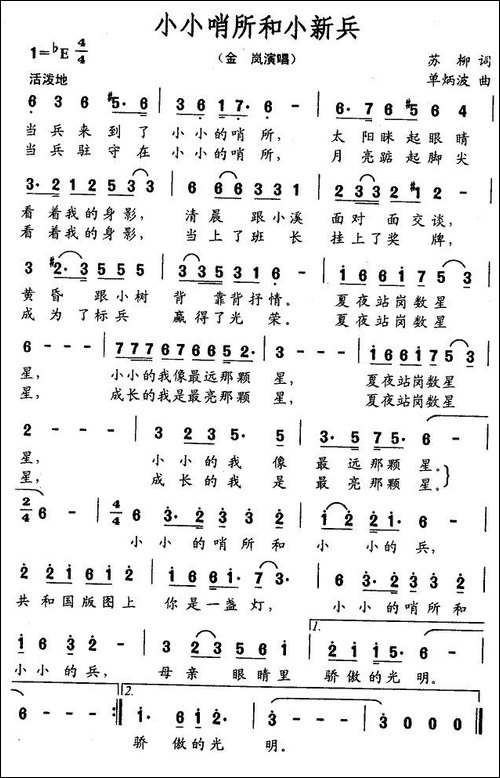 小小哨所和小新兵
1=♭E 4/4
（金 岚演唱）
苏 柳 词
活泼地
单炳波 曲
6 3 6 #5· 6 | 3 6 1 7· 6 | 6· 7 6 #5 6 4
当兵来到了 小小的哨所， 太阳眯起眼睛
当兵驻守在 小小的哨所， 月亮踮起脚尖
3· 2 1 2 5 3 3 | 6 6 6 3 3 1 | 2 3 3 2 #1 2 -
看着我的身影， 清晨 跟小溪 面对 面交谈，
看着我的身影， 当上了班 长 挂上了奖 牌，
3 #2· 3 5 5 5 | 3 3 5 3 1 6 - | 1 6 6 1 7 5 3
黄昏 跟小树 背 靠背抒情。 夏夜站岗数星
成为了标兵 赢得了光 荣。 夏夜站岗数星
6 - - - | 7 7 7 6 7 6 6 5 5 2· | 3 - - - | 1 6 6 1 7 5 3
星， 小小的我像最远那颗 星， 夏夜站岗数星
星， 成长的我是最亮那颗 星， 夏夜站岗数星
2 - - - | 3 2 3 5· 5 | 3· 5 7 5· 6 -
星， 小小的我 像 最 远那颗 星。
星， 成长的我 是 最 亮那颗 星。
2/4 6 - | 4/4 6 3· 2 3 3 2 | 1 2 2 1 6 -
小小的哨所和 小 小的兵，
2 2 1 6 1 2 | 1 1 6 6 1· 7 3· | 6 3· 2 3 3 2
共和国版图上 你是一盏灯， 小小的哨所和
1 6 3 2 - | 3 2 3 5 6 1 | 1. 2 1 1 5· 6 -
小小的兵， 母亲 眼睛里 骄傲的光 明。
6 - - :| 2. 1· 6 1 2· | 3 - - - | 3 0 0 0 ‖
骄 傲的光 明。